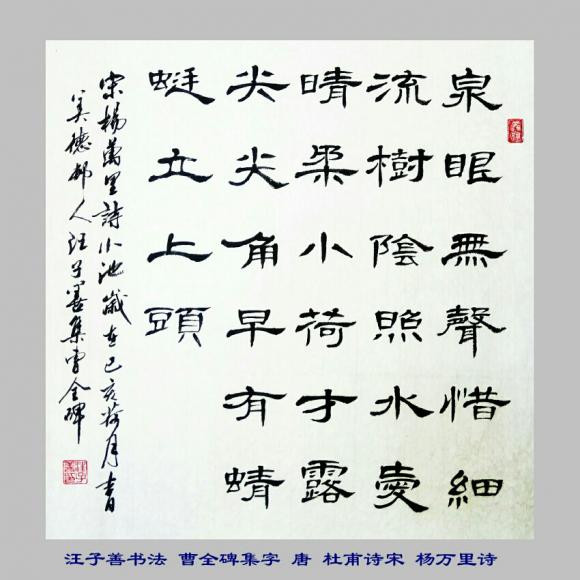 泉眼無聲惜細
流樹陰照水愛
晴柔小荷才露
尖尖角早有蜻
蜓立上頭
宋楊萬里詩小池歲在己亥荷月書
邨人汪子善集曹全碑
汪子善书法 曹全碑集字 唐 杜甫诗宋 杨万里诗